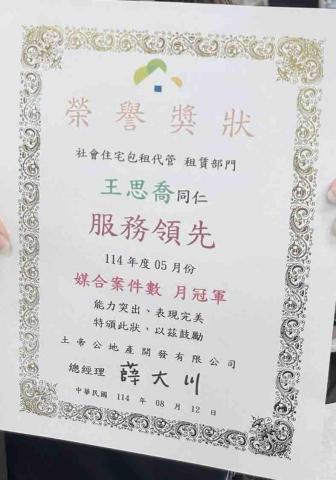 榮譽獎狀
社會住宅包租代管 租賃部門
王思喬同仁
服務領先
114 年度 05 月份
媒合案件數 月冠軍
能力突出、表現完美
特頒此狀，以茲鼓勵
土帝公地產開發有限公司
總經理 薛大川
中華民國 114 年 08 月 12 日